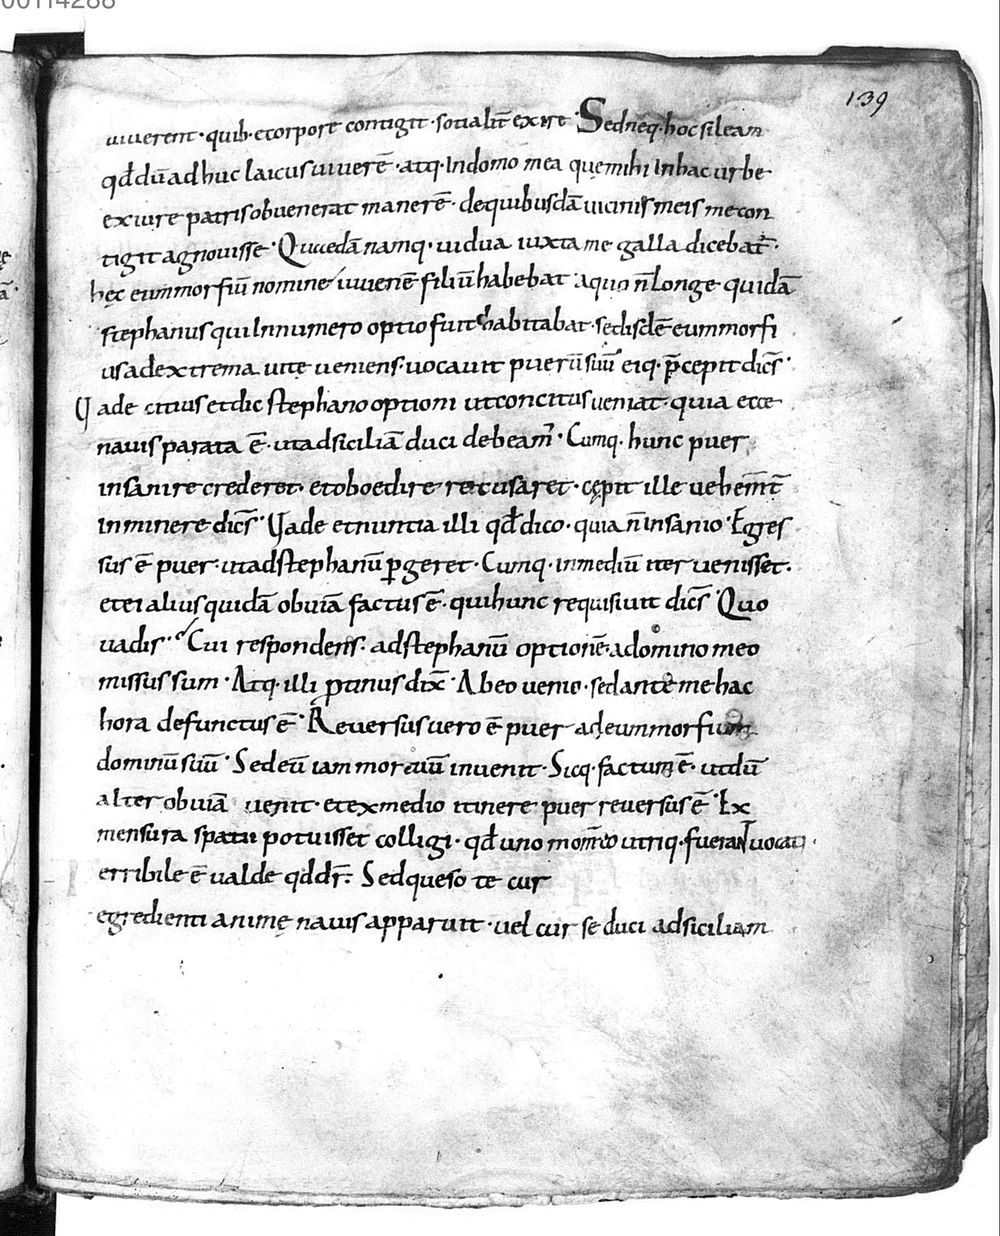 00114288
139
uiuerent · quib· ecorpore contigit · sotialit̄ exire · Sed neq· hoc sileam
qd̄ dū adhuc laicus uiuerē · atq· In domo mea que mihi In hac urbe
ex iure patris obuenerat manerē · de quibusdā uicinis meis me con
tigit agnouisse · Quedā namq· uidua iuxta me galla dicebat̄ ·
hęc eummorfiū nomine iuuenē filiū habebat · a quo n̄ longe quidā
stephanus qui In numero optio fuit habitabat · sed isdē eummorfi
us ad extrema uite ueniens · uocauit puerū suū eiq· p̄cepit dic̄s ·
Uade citius et dic stephano optioni ut concitus ueniat · quia ecce
nauis parata ē · ut ad siciliā duci debeam̄ · Cumq· hunc puer
insanire crederet · et oboedire recusaret · cępit ille uehem̄t̄
inminere dic̄s · Uade et nuntia illi qd̄ dico · quia n̄ insanio · Egres
sus ē puer · ut ad stephanū ꝑgeret · Cumq · in mediū iter uenisset ·
et ei alius quidā obuiā factus ē · qui hunc requisiuit dic̄s · Quo
uadis · Cui respondens · ad stephanū optionē · a domino meo
missus sum · Atq· illi ꝓtinus dix̄ · Ab eo uenio · sed ante me hac
hora defunctus ē · Reuersus uero ē puer ad eummorfium
dominū suū · Sed eū iam mortuū inuenit · Sicq· factum ē · ut dū
alter obuiā uenit · et ex medio itinere puer reuersus ē · Ex
mensura spatii potuisset colligi · qd̄ uno mom̄to utriq· fuerant uocati ·
erribile ē ualde qd dr̄ · Sed queso te cur
egredienti animę nauis apparuit · uel cur se duci ad siciliam